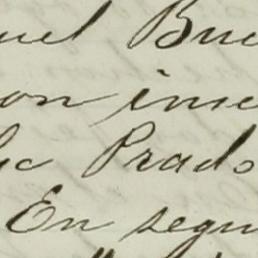 uel Bue
on inse
lic Prado
En segu